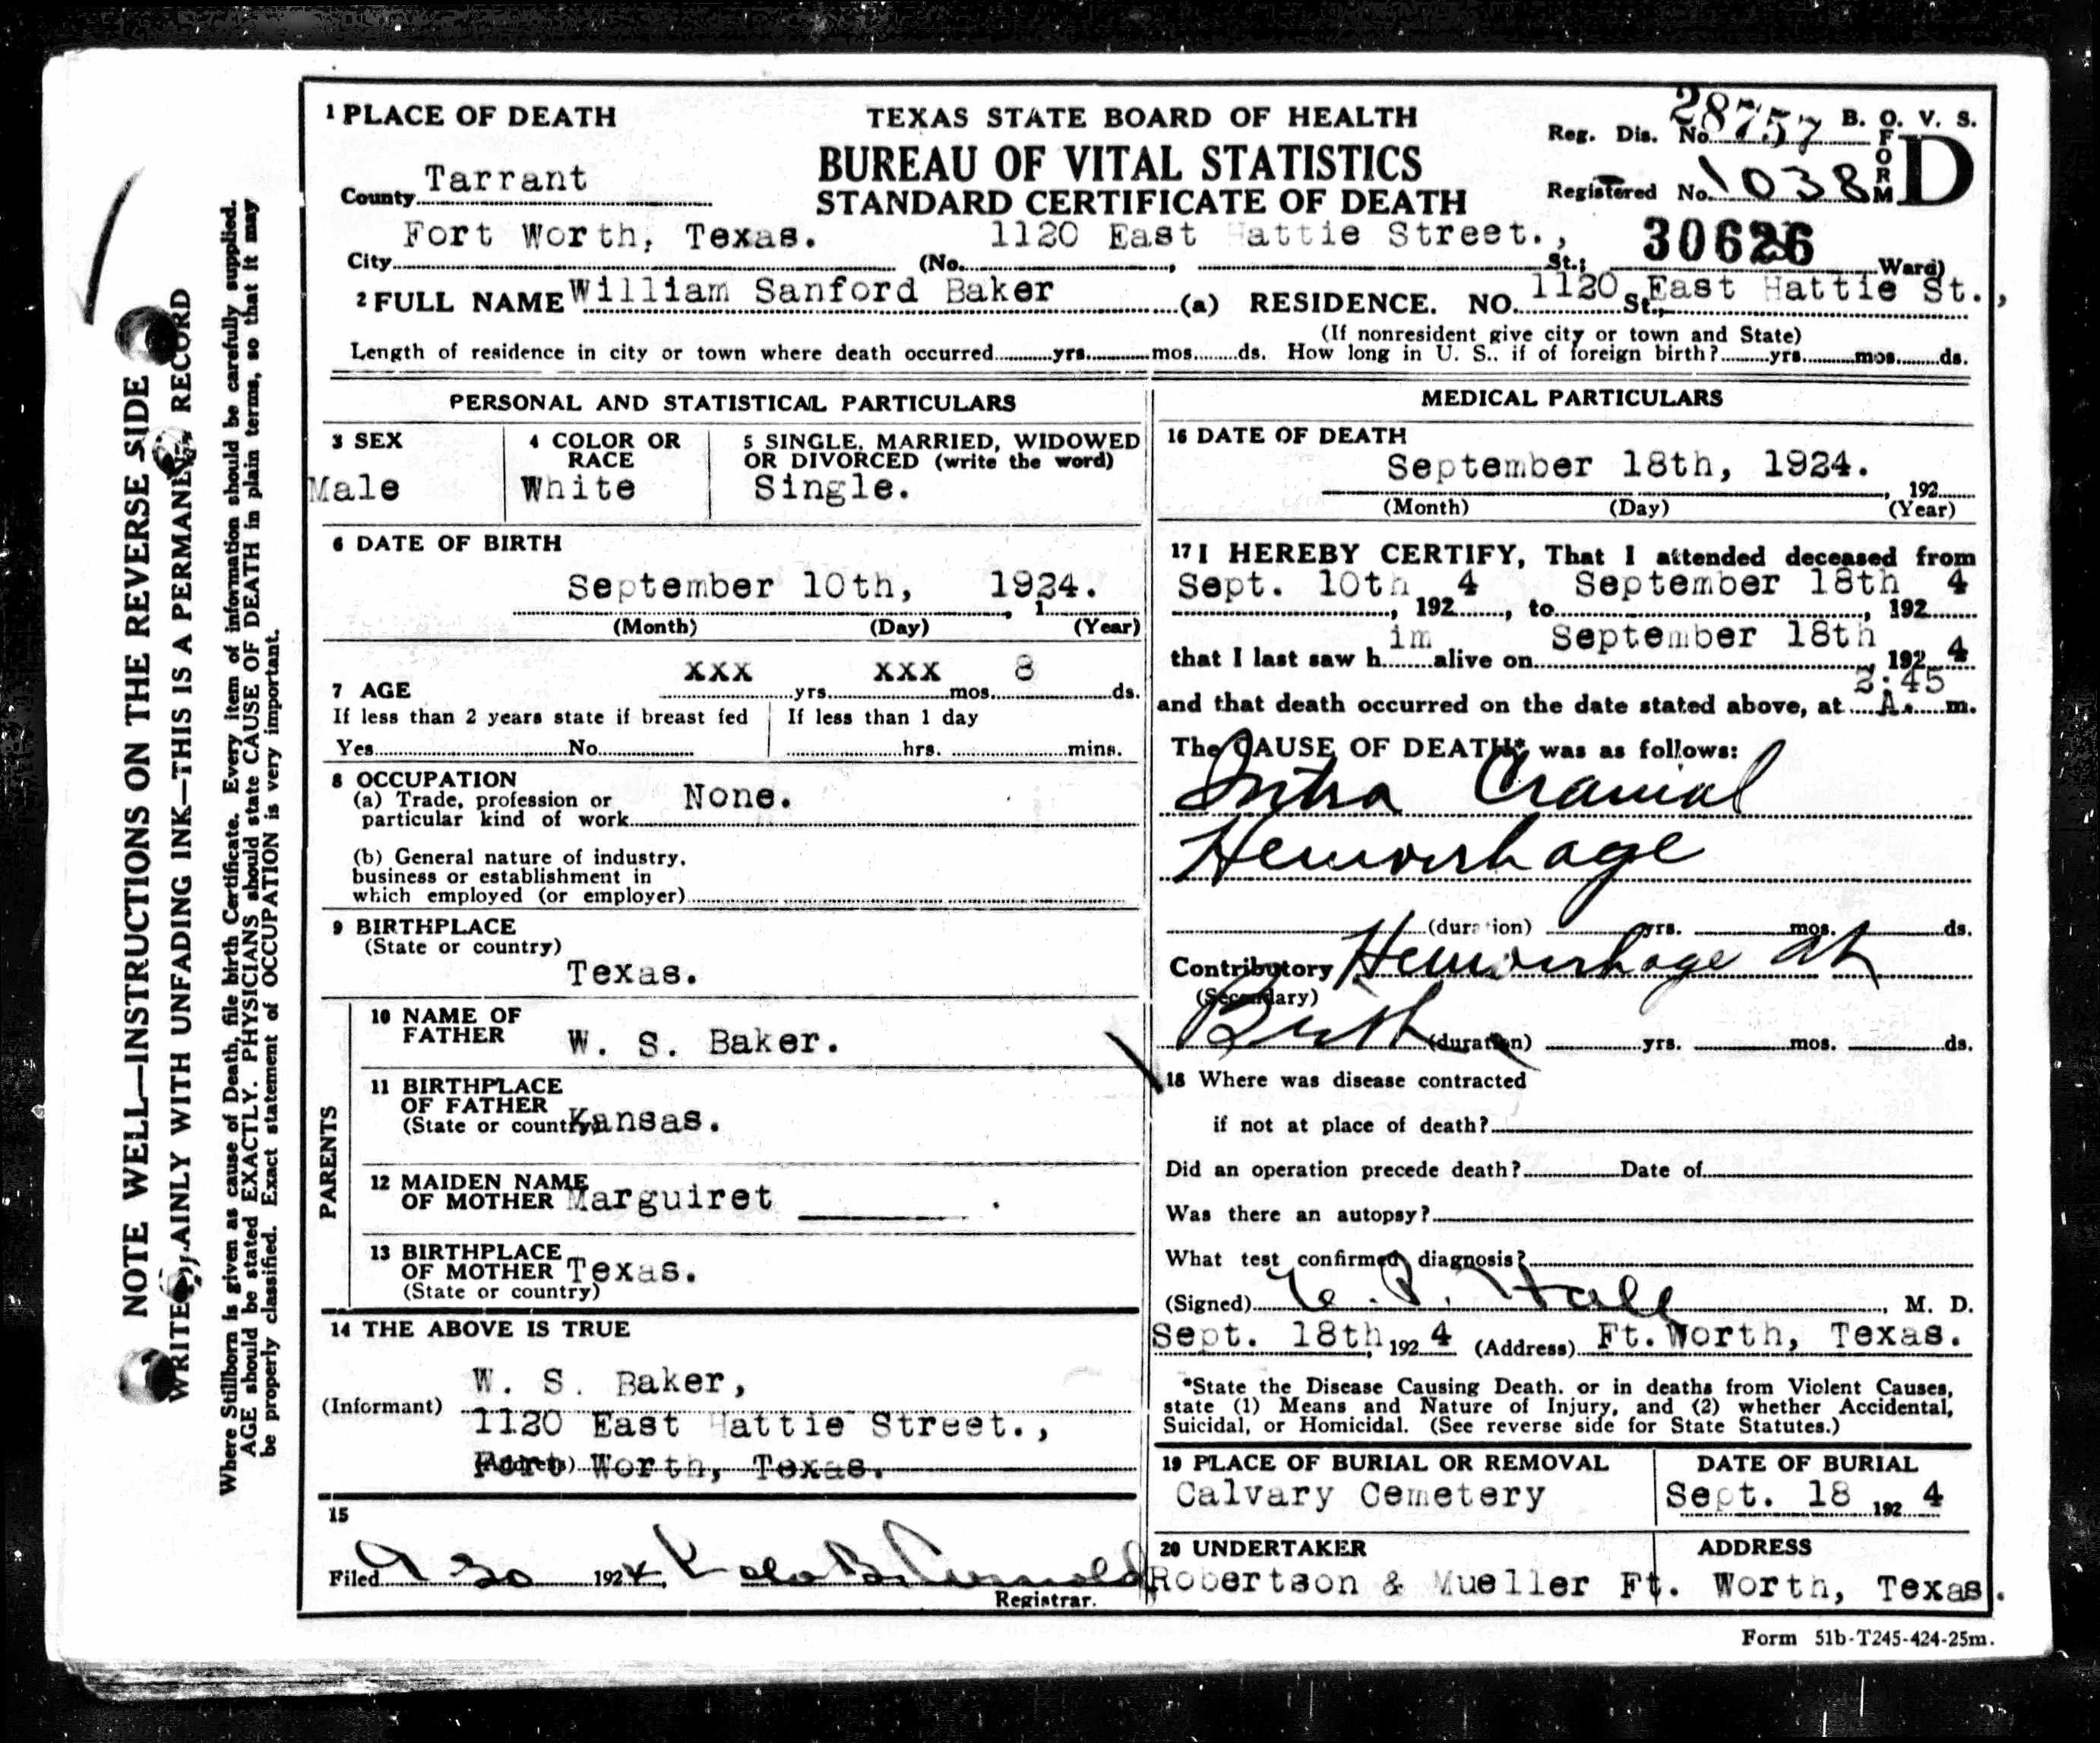 NOTE WELL—INSTRUCTIONS ON THE REVERSE SIDE
WRITE PLAINLY WITH UNFADING INK—THIS IS A PERMANENT RECORD
Where Stillborn is given as cause of Death, file birth Certificate. Every item of information should be carefully supplied.
AGE should be stated EXACTLY. PHYSICIANS should state CAUSE OF DEATH in plain terms, so that it may
be properly classified. Exact statement of OCCUPATION is very important.
1 PLACE OF DEATH
County Tarrant
TEXAS STATE BOARD OF HEALTH
BUREAU OF VITAL STATISTICS
STANDARD CERTIFICATE OF DEATH
Reg. Dis. No. 28757
Registered No. 1038
B. O. V. S.
FORM D
30626
City Fort Worth, Texas. (No. 1120 East Hattie Street., St.; Ward)
2 FULL NAME William Sanford Baker (a) RESIDENCE. NO. 1120 St. East Hattie St.,
(If nonresident give city or town and State)
Length of residence in city or town where death occurred yrs. mos. ds. How long in U. S.. if of foreign birth? yrs. mos. ds.
PERSONAL AND STATISTICAL PARTICULARS
3 SEX
Male
4 COLOR OR RACE
White
5 SINGLE, MARRIED, WIDOWED
OR DIVORCED (write the word)
Single.
6 DATE OF BIRTH
September 10th, 1924.
, 1
(Month) (Day) (Year)
7 AGE xxx yrs. xxx mos. 8 ds.
If less than 2 years state if breast fed
Yes No
If less than 1 day
hrs. mins.
8 OCCUPATION
(a) Trade, profession or
particular kind of work None.
(b) General nature of industry,
business or establishment in
which employed (or employer)
9 BIRTHPLACE
(State or country)
Texas.
PARENTS
10 NAME OF
FATHER W. S. Baker.
11 BIRTHPLACE
OF FATHER
(State or country) Kansas.
12 MAIDEN NAME
OF MOTHER Marguiret ________ .
13 BIRTHPLACE
OF MOTHER Texas.
(State or country)
14 THE ABOVE IS TRUE
(Informant) W. S. Baker,
1120 East Hattie Street.,
(Address) Fort Worth, Texas.
15
Filed 9 30 1924,
Registrar.
MEDICAL PARTICULARS
16 DATE OF DEATH
September 18th, 1924.
, 192
(Month) (Day) (Year)
17 I HEREBY CERTIFY, That I attended deceased from
Sept. 10th, 1924, to September 18th, 1924
that I last saw him alive on September 18th, 1924
and that death occurred on the date stated above, at 2:45 A. m.
The CAUSE OF DEATH* was as follows:
Intra Cranial
Hemorrhage
(duration) yrs. mos. ds.
Contributory Hemorrhage at
(Secondary)
Birth (duration) yrs. mos. ds.
18 Where was disease contracted
if not at place of death?
Did an operation precede death? Date of
Was there an autopsy?
What test confirmed diagnosis?
(Signed) Hall, M. D.
Sept. 18th, 1924 (Address) Ft. Worth, Texas.
*State the Disease Causing Death. or in deaths from Violent Causes,
state (1) Means and Nature of Injury, and (2) whether Accidental,
Suicidal, or Homicidal. (See reverse side for State Statutes.)
19 PLACE OF BURIAL OR REMOVAL
Calvary Cemetery
DATE OF BURIAL
Sept. 18 1924
20 UNDERTAKER
Robertson & Mueller
ADDRESS
Ft. Worth, Texas.
Form 51b-T245-424-25m.